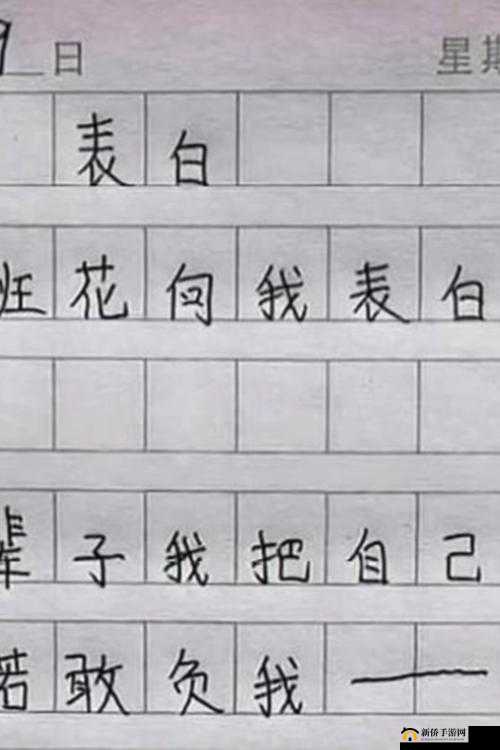 9日 星期
表白
班花向我表白
辈子我把自己
若敢负我——
新侨手游网